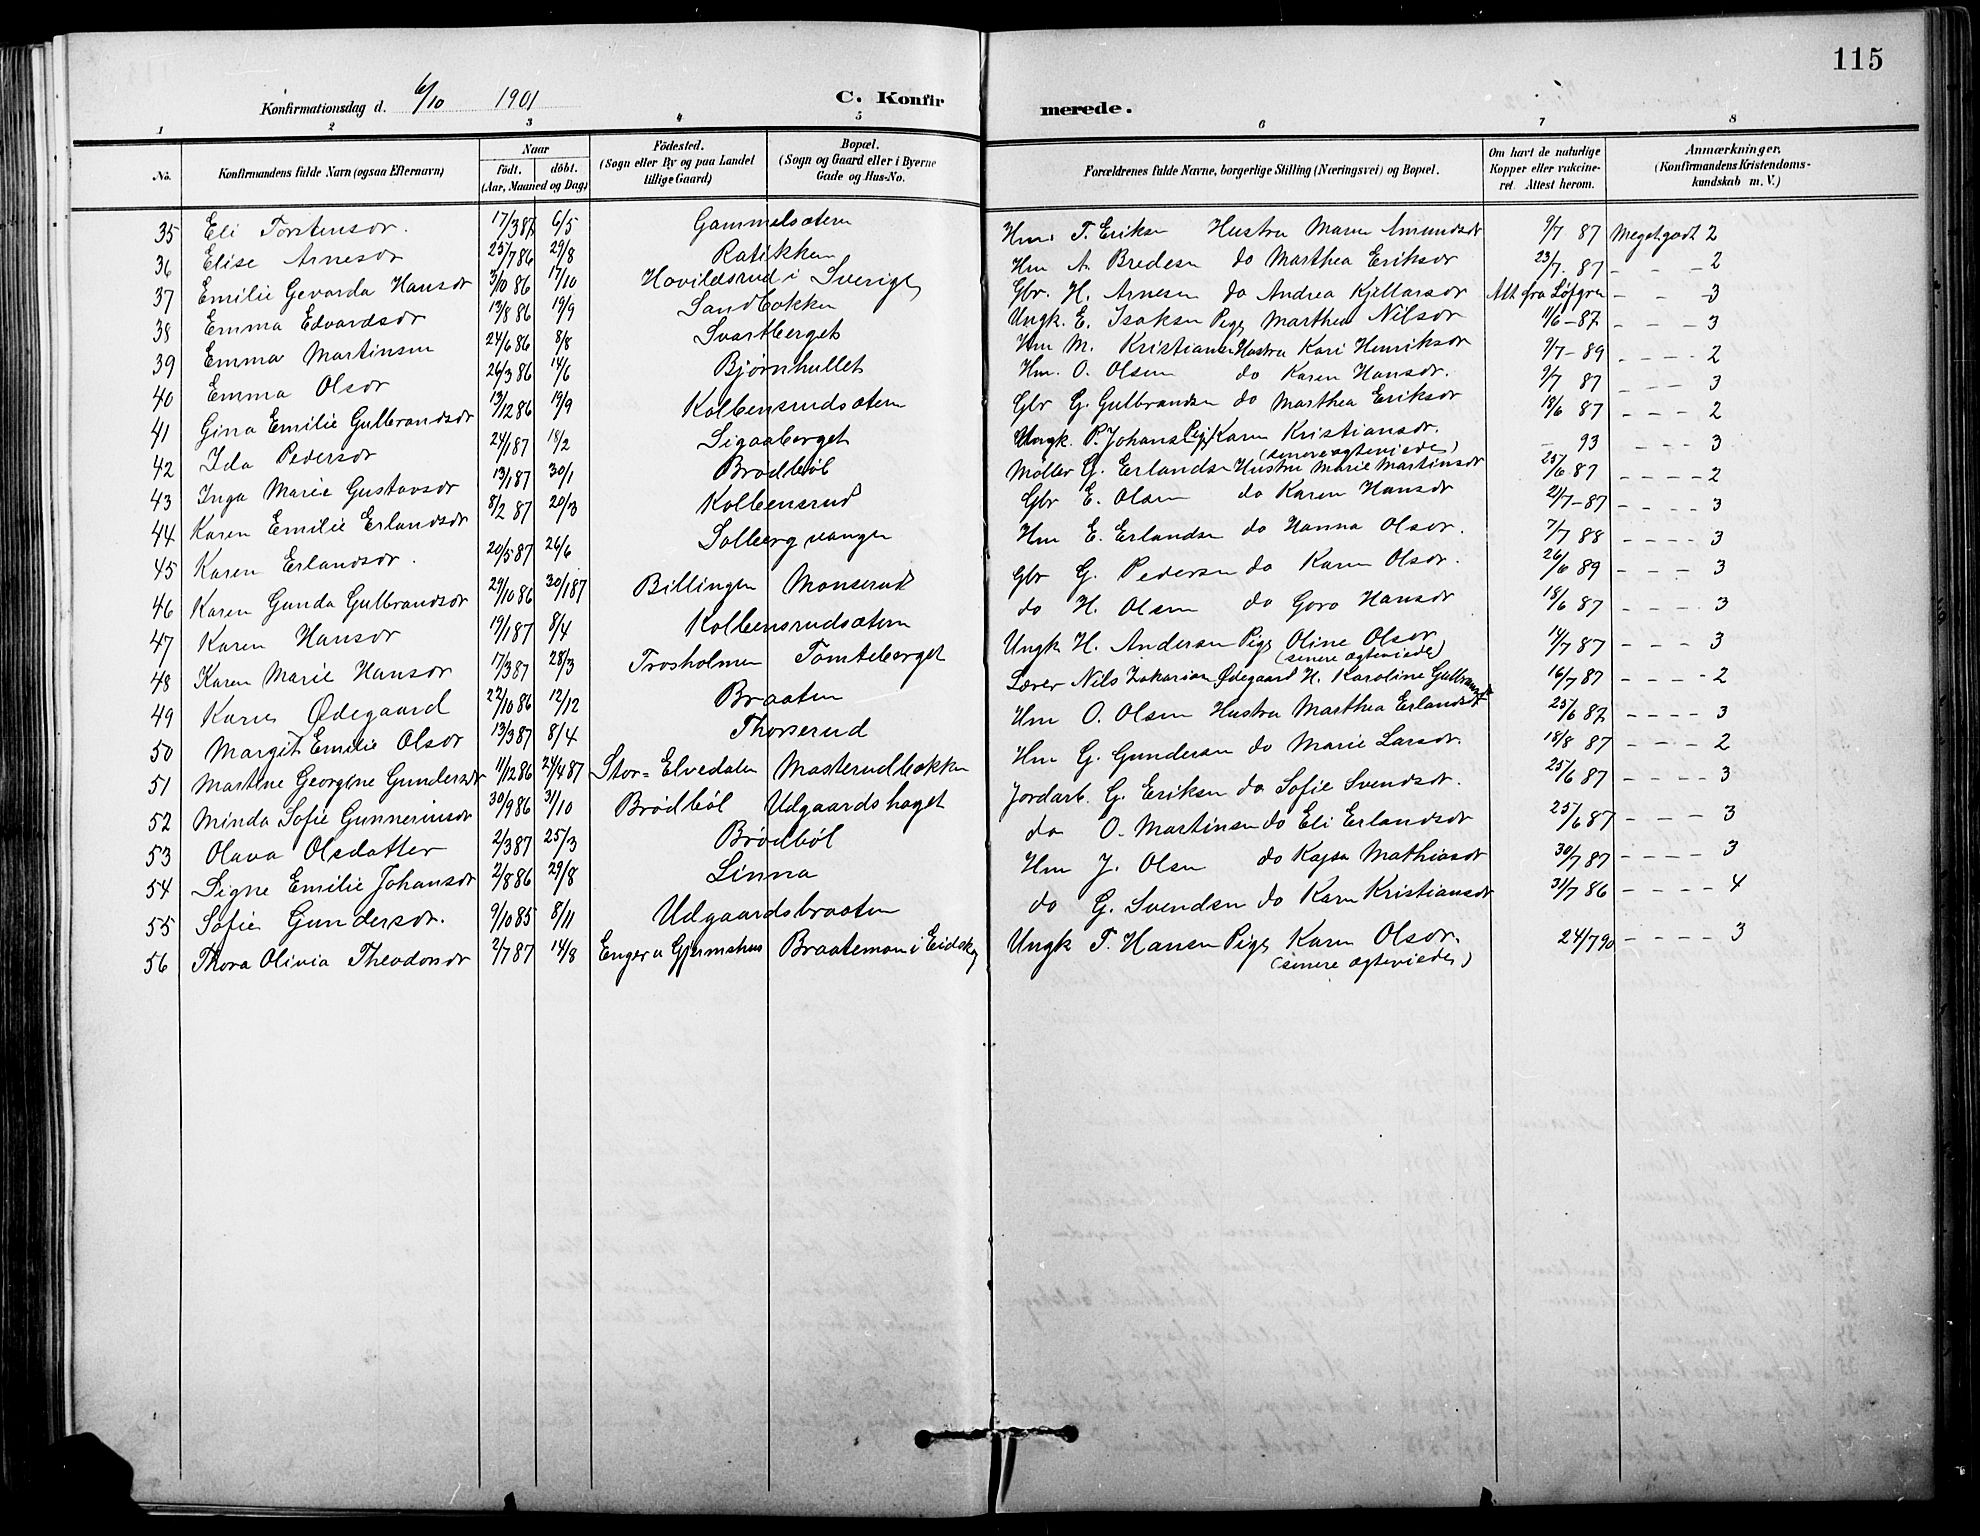 115
Konfirmationsdag d. 6/10 1901 C. Konfirmerede.
1 2 3 4 5 6 7 8
No. Konfirmandens fulde Navn (ogsaa Efternavn) Naar födt. döbt. (Aar, Maaned og Dag) Födested. (Sogn eller By og paa Landet tillige Gaard) Bopæl. (Sogn og Gaard eller i Byerne Gade og Hus-No. Forældrenes fulde Navne, borgerlige Stilling (Næringsvei) og Bopæl. Om havt de naturlige Kopper eller vakcineret. Attest herom. Anmærkninger. (Konfirmandens Kristendomskundskab m. V.)
35 Eli Torstensdr. 17/3 87 6/5 Gammelsætern Hm. T. Eriksen Hustru Maren Amundsdr 9/7 87 Megetgodt 2
36 Elise Arnesdr 25/7 86 29/8 Ratikken Hm A. Bredesen do Marthea Eriksdr 23/7. 87 - - - 2
37 Emilie Gevarda Hansdr 3/10 86 17/10 Hovildsrud i Sverige Gbr. H. Arnesen do Andrea Kjellarsdr Att. fra Löfgren - - - 3
38 Emma Edvardsdr 13/8 86 19/9 Sandbakken Ungk. E. Isaksen Pige Marthea Nilsdr 11/6 - 87 - - - 3
39 Emma Martinsen 24/6 86 8/8 Svartberget Hm M. Kristiansen Hustru Kari Henriksdr 9/7 - 89 - - - - 2
40 Emma Olsdr 26/3 86 14/6 Bjørnhullet Hm. O. Olsen do Karen Hansdr. 9/7 87 - - - 3
41 Gina Emilie Gulbrandsdr 13/12 86 19/9 Kolbensrudsætern Gbr G. Gulbrandsen do Marthea Eriksdr 18/6 87 - - - - 2
42 Ida Pedersdr 24/1 87 18/2 Sigaaberget Ungk. P. Johans. Pige Karen Kristiansdr. (senere ægteviede) - 93 - - - 3
43 Inga Marie Gustavsdr 13/1 87 30/1 Brødbøl Møller G. Erlandsen Hustru Marie Martinsdr 25/6 87 - - - - 2
44 Karen Emilie Erlandsdr 8/2 87 20/3 Kolbensrud Gbr E. Olsen do Karen Hansdr 21/7 - 87 - - - - 3
45 Karen Erlandsdr. 20/5 87 26/6 Solberg vangen Hm E. Erlandsen do Hanna Olsdr. 7/7 88 - - - - 3
46 Karen Gunda Gulbrandsdr 29/10 86 30/1 87 Billingen Monsrud Gbr G. Pedersen do Karen Olsdr. 26/6 89 - - - 3
47 Karen Hansdr 19/1 87 8/4 Kolbensrudsætern do H. Olsen do Goro Hansdr 18/6 87 - - - - 3
48 Karen Marie Hansdr 17/3 87 28/3 Trosholmen Tomteberget Ungk H. Andersen Pige Oline Olsdr (senere ægteviede) 14/7 87 - - - 3
49 Karen Ødegaard 22/10 86 12/12 Braaten Lærer Nils Zakarias Ødegaard H. Karoline Gulbrandsdr 16/7 87 - - - - 2
50 Margit Emilie Olsdr 13/3 87 8/4 Thorserud Hm O. Olsen Hustru Marthea Erlandsdr 25/6 87 - - - - 3
51 Martine Georgene Gundersdr 11/12 86 24/4 87 Stor-Elvedalen Masterudbakken Hm G. Gundersen do Marie Larsdr. 18/8 87 - - - 2
52 Minda Sofie Gunneriusdr 30/9 86 31/10 Brödböl Udgaardshaget Jordarb. G. Eriksen do Sofie Svendsdr. 25/6 87 - - - - 3
53 Olava Olsdatter 2/3 87 25/3 Brödböl do O. Martinsen do Eli Erlandsdr 25/6 87 - - - - 3
54 Signe Emilie Johansdr 2/8 86 29/8 Linna Hm J. Olsen do Kajsa Mathiasdr 30/7 87 - - - - 3
55 Sofie Gundersdr. 9/10 85 8/11 Udgaardsbraaten do G. Svendsen do Karen Kristiansdr 31/7 86 - - - - 4
56 Thora Olivia Theodorsdr 2/7 87 14/8 Enger u Gjermshus Braatemoen i Eidskog Ungk T. Hansen Pige Karen Olsdr. (senere ægteviede) 24/7 90 - - - - 3